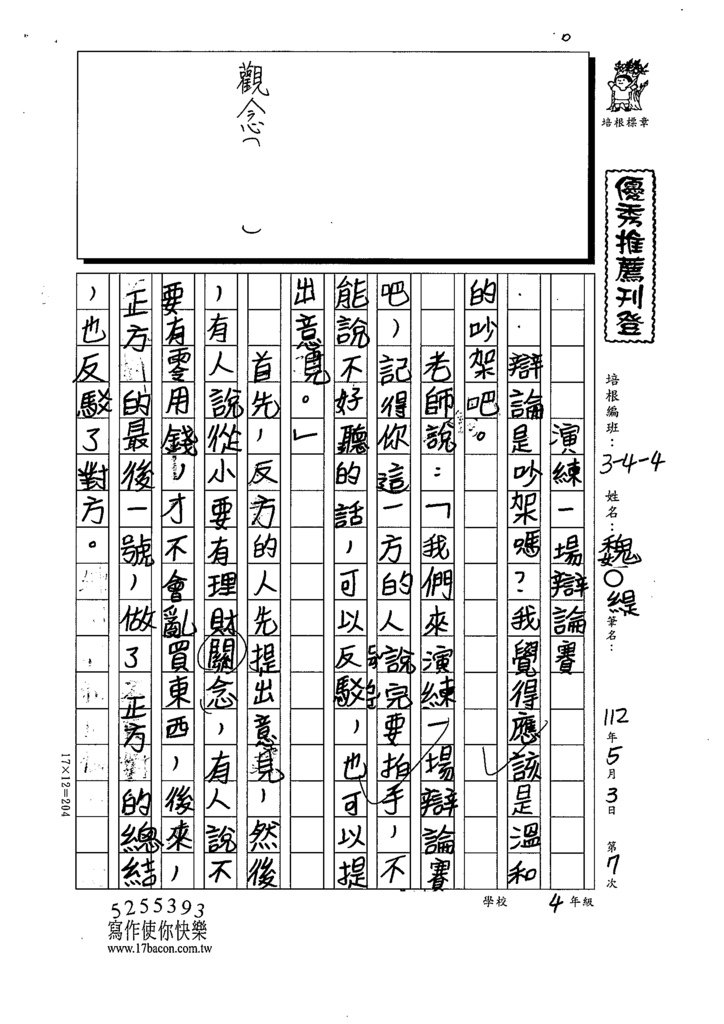 培根標章
優秀推薦刊登
培根編班：3-4-4 姓名：魏○緹 筆名：
112年5月3日 第7次
學校 4年級
觀念（ ）
演練一場辯論賽
辯論是吵架嗎？我覺得應該是溫和
的吵架吧。
老師說：「我們來演練一場辯論賽
吧，記得你這一方的人說完要拍手，不
能說不好聽的話，可以反駁，也可以提
出意見。」
首先，反方的人先提出意見，然後
，有人說從小要有理財關念，有人說不
要有零用錢，才不會亂買東西，後來，
正方的最後一號，做了正方的總結
，也反駁了對方。
17×12=204
5255393
寫作使你快樂
www.17bacon.com.tw